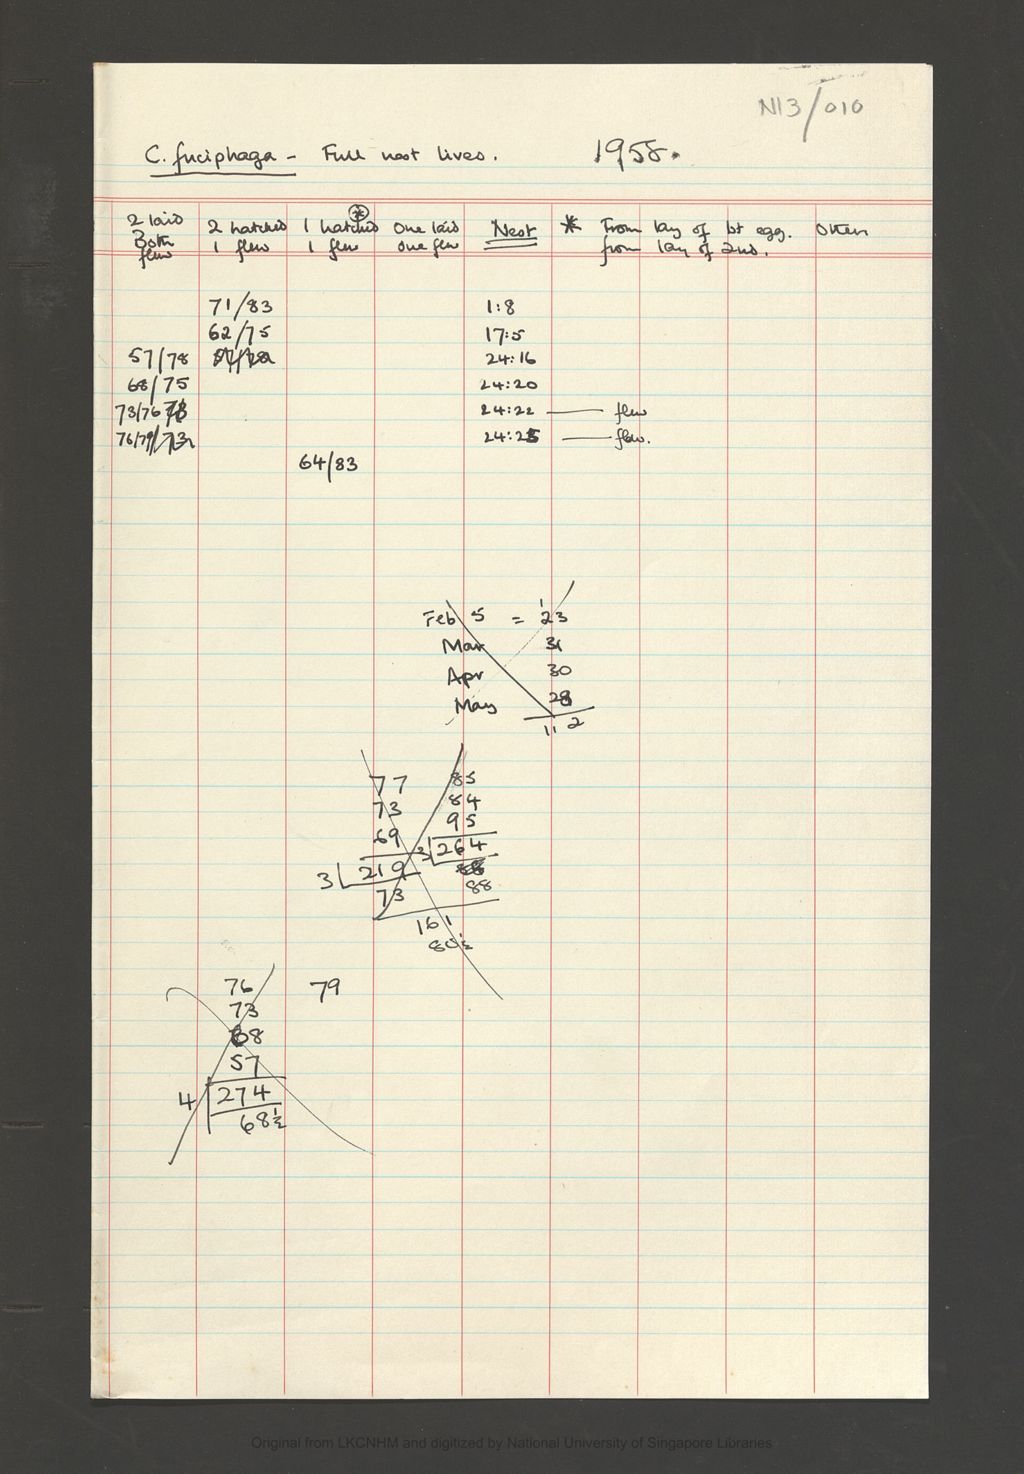 N13/010
C. fuciphaga - Full nest lives. 1958.
2 laid Both flew
2 hatched 1 flew
1 hatched * 1 flew
One laid one flew
Nest
* From lay of 1st egg. from lay of 2nd.
Other
71/83 1:8
62/75 17:5
57/78 24:16
68/75 24:20
73/76 24:22 — flew
76/79/73 24:25 — flew.
64/83
Feb 5 = 23
Mar 31
Apr 30
May 28
112
77 85
73 84
69 95
3 219 3 264
73 88
161
80½
76 79
73
68
57
4 274
68½
Original from LKCNHM and digitized by National University of Singapore Libraries